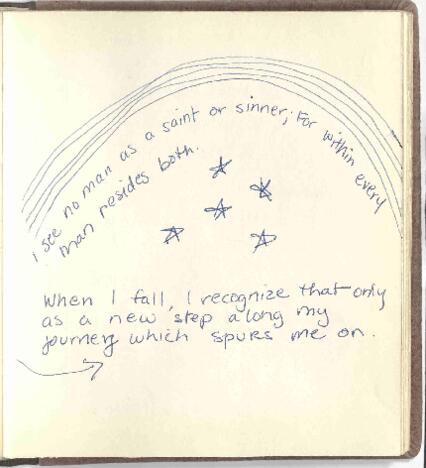 I see no man as a saint or sinner; for within every
man resides both.
When I fall, I recognize that only
as a new step along my
journey which spurs me on.